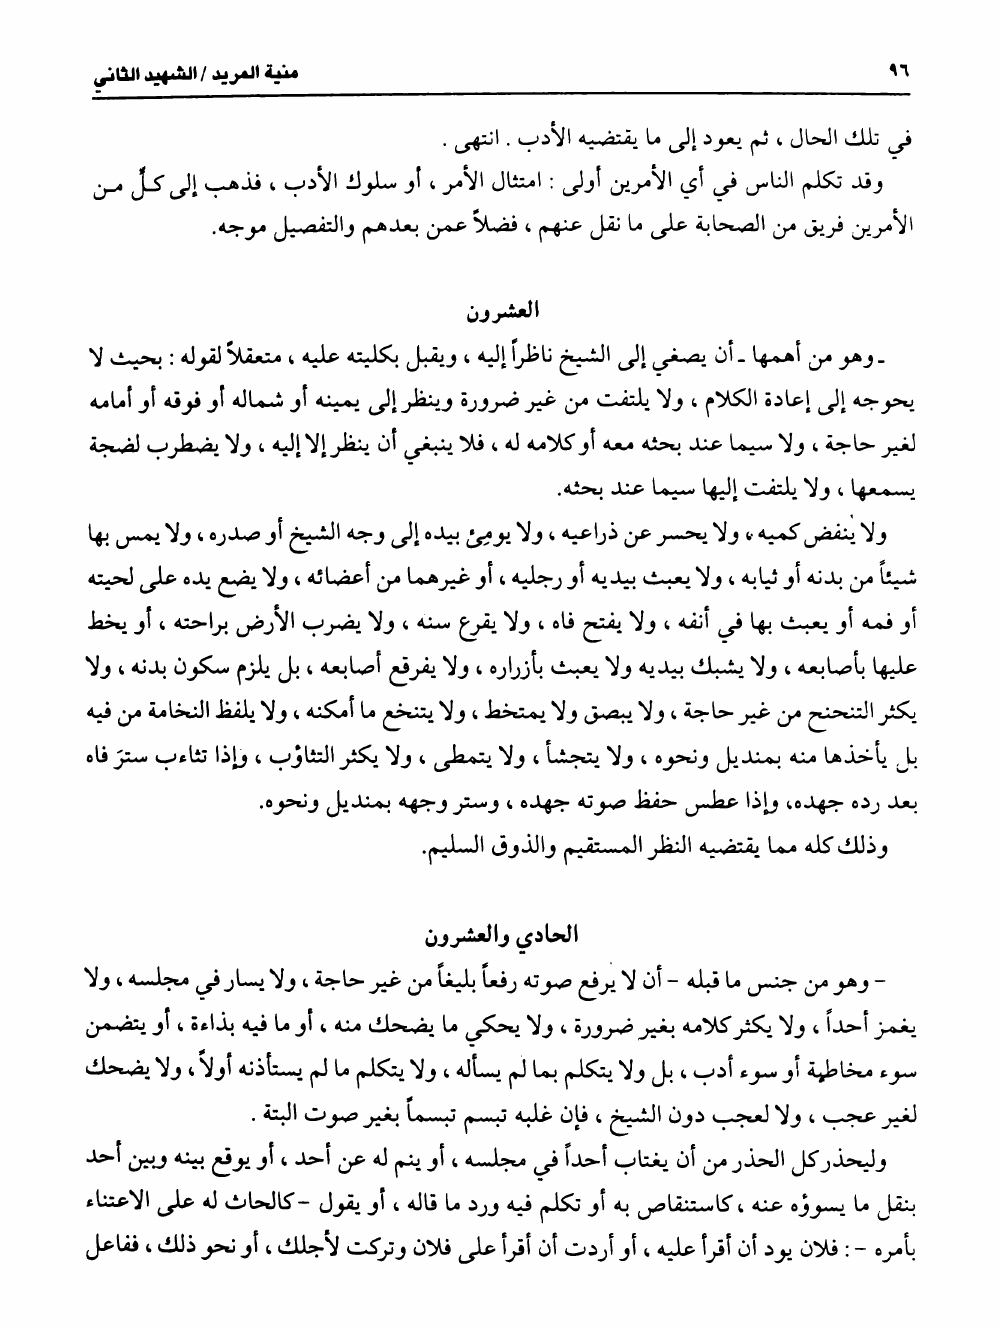 ٩٦
منية المريد / الشهيد الثاني
في تلك الحال ، ثم يعود إلى ما يقتضيه الأدب . انتهى .
وقد تكلم الناس في أي الأمرين أولى : امتثال الأمر ، أو سلوك الأدب ، فذهب إلى كلٍّ من
الأمرين فريق من الصحابة على ما نقل عنهم ، فضلاً عمن بعدهم والتفصيل موجه.
العشرون
ـ وهو من أهمها ـ أن يصغي إلى الشيخ ناظراً إليه ، ويقبل بكليته عليه ، متعقلاً لقوله : بحيث لا
يحوجه إلى إعادة الكلام ، ولا يلتفت من غير ضرورة وينظر إلى يمينه أو شماله أو فوقه أو أمامه
لغير حاجة ، ولا سيما عند بحثه معه أو كلامه له ، فلا ينبغي أن ينظر إلا إليه ، ولا يضطرب لضجة
يسمعها ، ولا يلتفت إليها سيما عند بحثه.
ولا يُنفض كميه ، ولا يحسر عن ذراعيه ، ولا يومئ بيده إلى وجه الشيخ أو صدره ، ولا يمس بها
شيئاً من بدنه أو ثيابه ، ولا يعبث بيديه أو رجليه ، أو غيرهما من أعضائه ، ولا يضع يده على لحيته
أو فمه أو يعبث بها في أنفه ، ولا يفتح فاه ، ولا يقرع سنه ، ولا يضرب الأرض براحته ، أو يخط
عليها بأصابعه ، ولا يشبك بيديه ولا يعبث بأزراره ، ولا يفرقع أصابعه ، بل يلزم سكون بدنه ، ولا
يكثر التنحنح من غير حاجة ، ولا يبصق ولا يمتخط ، ولا يتنخع ما أمكنه ، ولا يلفظ النخامة من فيه
بل يأخذها منه بمنديل ونحوه ، ولا يتجشأ ، ولا يتمطى ، ولا يكثر التثاؤب ، وإذا تثاءب سترَ فاه
بعد رده جهده، وإذا عطس حفظ صوته جهده ، وستر وجهه بمنديل ونحوه.
وذلك كله مما يقتضيه النظر المستقيم والذوق السليم.
الحادي والعشرون
– وهو من جنس ما قبله – أن لا يرفع صوته رفعاً بليغاً من غير حاجة ، ولا يسار في مجلسه ، ولا
يغمز أحداً ، ولا يكثر كلامه بغير ضرورة ، ولا يحكي ما يضحك منه ، أو ما فيه بذاءة ، أو يتضمن
سوء مخاطبة أو سوء أدب ، بل ولا يتكلم بما لم يسأله ، ولا يتكلم ما لم يستأذنه أولاً ، ولا يضحك
لغير عجب ، ولا لعجب دون الشيخ ، فإن غلبه تبسم تبسماً بغير صوت البتة .
وليحذر كل الحذر من أن يغتاب أحداً في مجلسه ، أو ينم له عن أحد ، أو يوقع بينه وبين أحد
بنقل ما يسوؤه عنه ، كاستنقاص به أو تكلم فيه ورد ما قاله ، أو يقول – كالحاث له على الاعتناء
بأمره – : فلان يود أن أقرأ عليه ، أو أردت أن أقرأ على فلان وتركت لأجلك ، أو نحو ذلك ، ففاعل